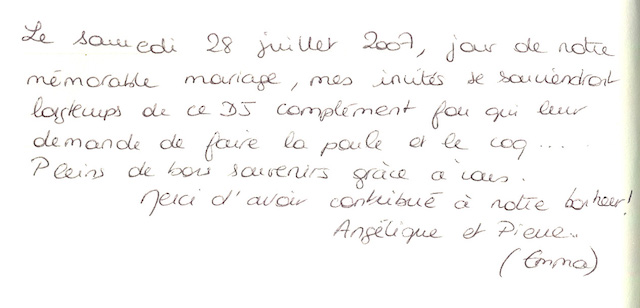 Le samedi 28 juillet 2007, jour de notre
mémorable mariage, mes invités se souviendront
longtemps de ce DJ complément fou qui leur
demande de faire la poule et le coq...
Pleins de bons souvenirs grâce à vous.
Merci d'avoir contribué à notre bonheur!
Angélique et Pierre..
(Emma)